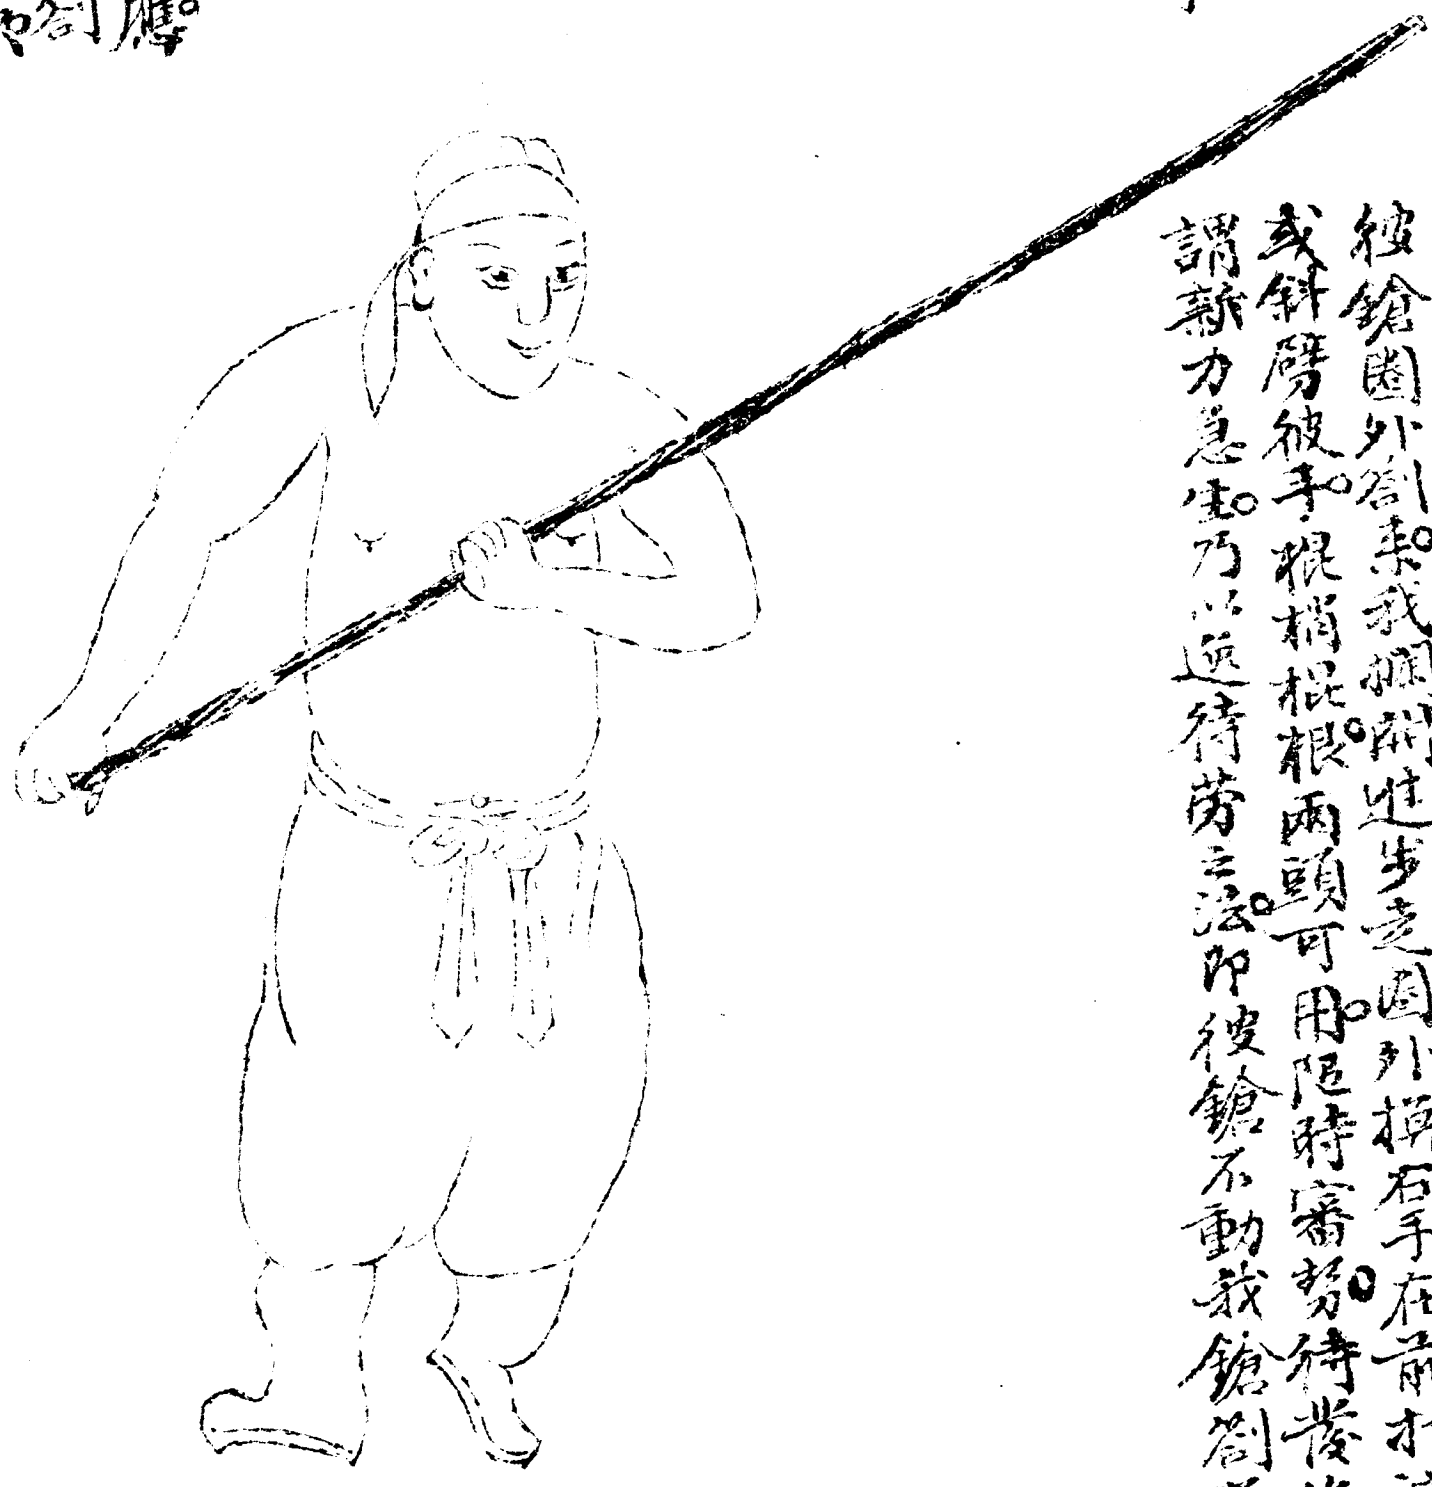 彼鎗圈外劄來。我攔開進步走圈外揮右手在前
或斜劈彼手。棍梢棍根。兩頭可用。隨時審勢。待發
謂新力急生。乃以逸待勞之法。即彼鎗不動我鎗劄
應。
劄